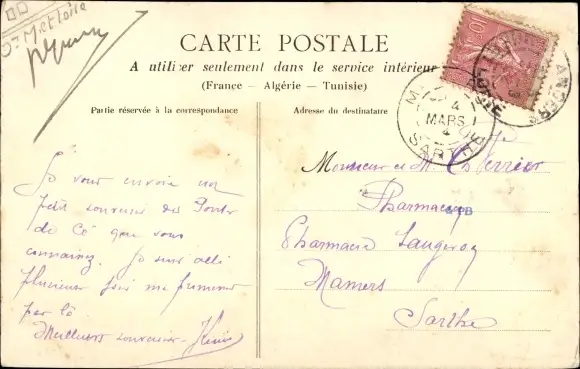 Mre et Loire
CARTE POSTALE
A utiliser seulement dans le service intérieur
(France - Algérie - Tunisie)
Partie réservée à la correspondance
Adresse du destinataire
10
ANGERS
4
MARS
SARTHE
Je vous envoie un
petit souvenir des Ponts
de Cé que vous
connaissez. Je suis allé
plusieurs fois me promener
par là
Meilleurs souvenirs
Monsieur et M
Pharmacien
Pharmacie
Mamers
Sarthe